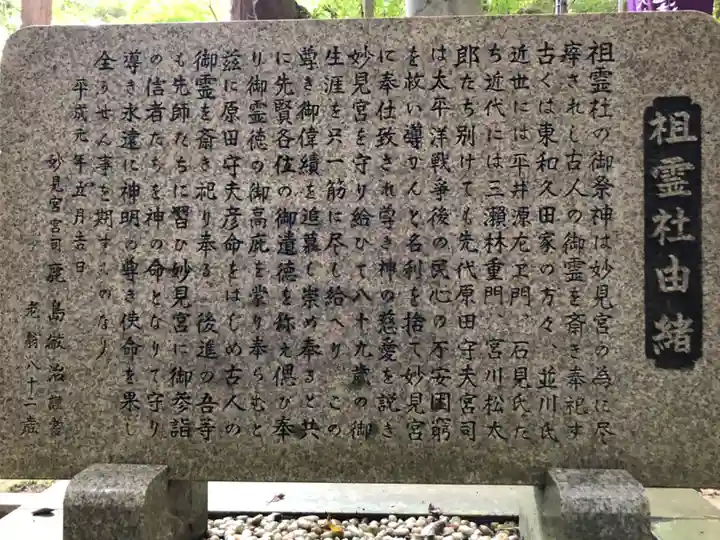 祖霊社由緒
祖霊社の御祭神は妙見宮の為に尽
瘁されし古人の御霊を斎き奉祀す
古くは東和久田家の方々、並川氏
近世には平井源左ヱ門、石見氏た
ち近代には三瀬林重門、宮川松太
郎たち別けても先代原田守夫宮司
は太平洋戦争後の民心の不安困窮
を救い導かんと名利を捨て妙見宮
に奉仕致され尊き神の慈愛を説き
妙見宮を守り給ひて八十九歳の御
生涯を只一筋に尽し給へり、この
尊き御偉績を追慕し崇め奉ると共
に先賢各位の御遺徳を称え偲び奉
り御霊徳の御高庇を蒙り奉らむと
茲に原田守夫彦命をはじめ古人の
御霊を斎き祀り奉る、後進の吾等
も先師たちに習ひ妙見宮に御参詣
の信者たちを神の命となりて守り
導き永遠に神明の尊き使命を果し
全うせん事を期するものなり
平成元年五月吉日
妙見宮宮司 鹿島敏治謹書
老翁八十二歳